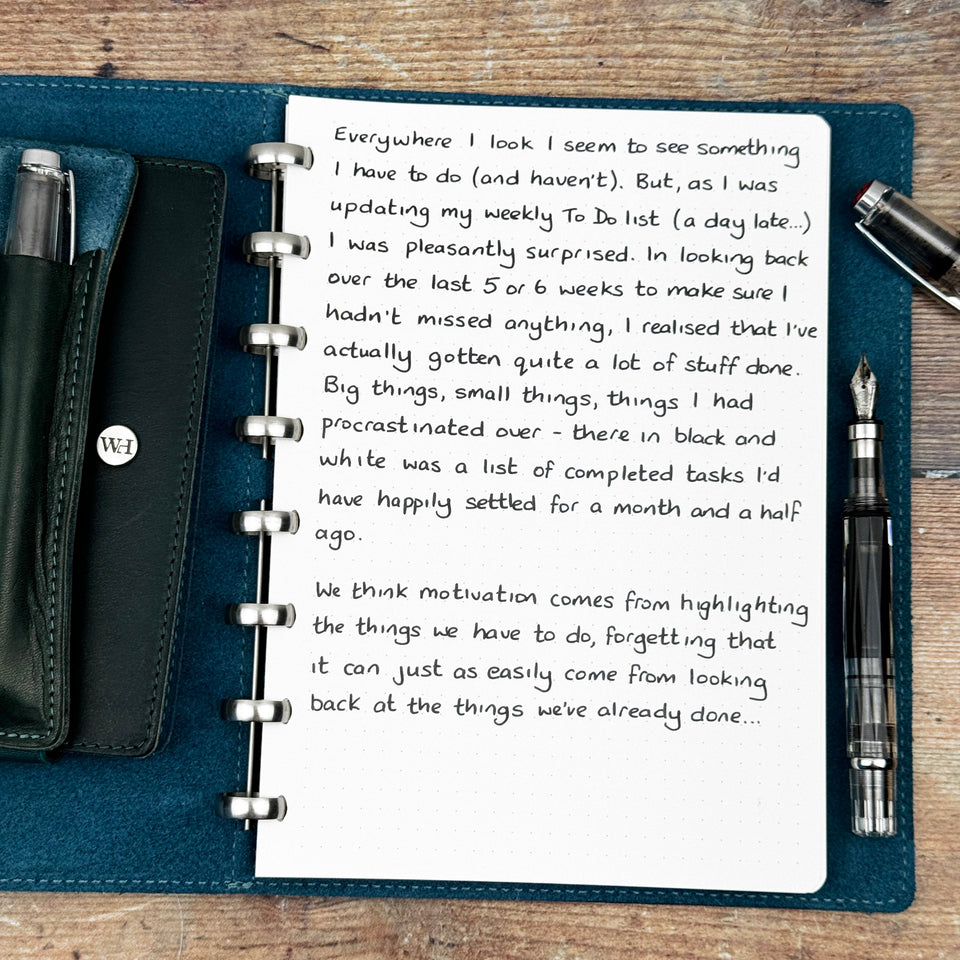 Everywhere I look I seem to see something
I have to do (and haven't). But, as I was
updating my weekly To Do list (a day late...)
I was pleasantly surprised. In looking back
over the last 5 or 6 weeks to make sure I
hadn't missed anything, I realised that I've
actually gotten quite a lot of stuff done.
Big things, small things, things I had
procrastinated over - there in black and
white was a list of completed tasks I'd
have happily settled for a month and a half
ago.
We think motivation comes from highlighting
the things we have to do, forgetting that
it can just as easily come from looking
back at the things we've already done...
WH